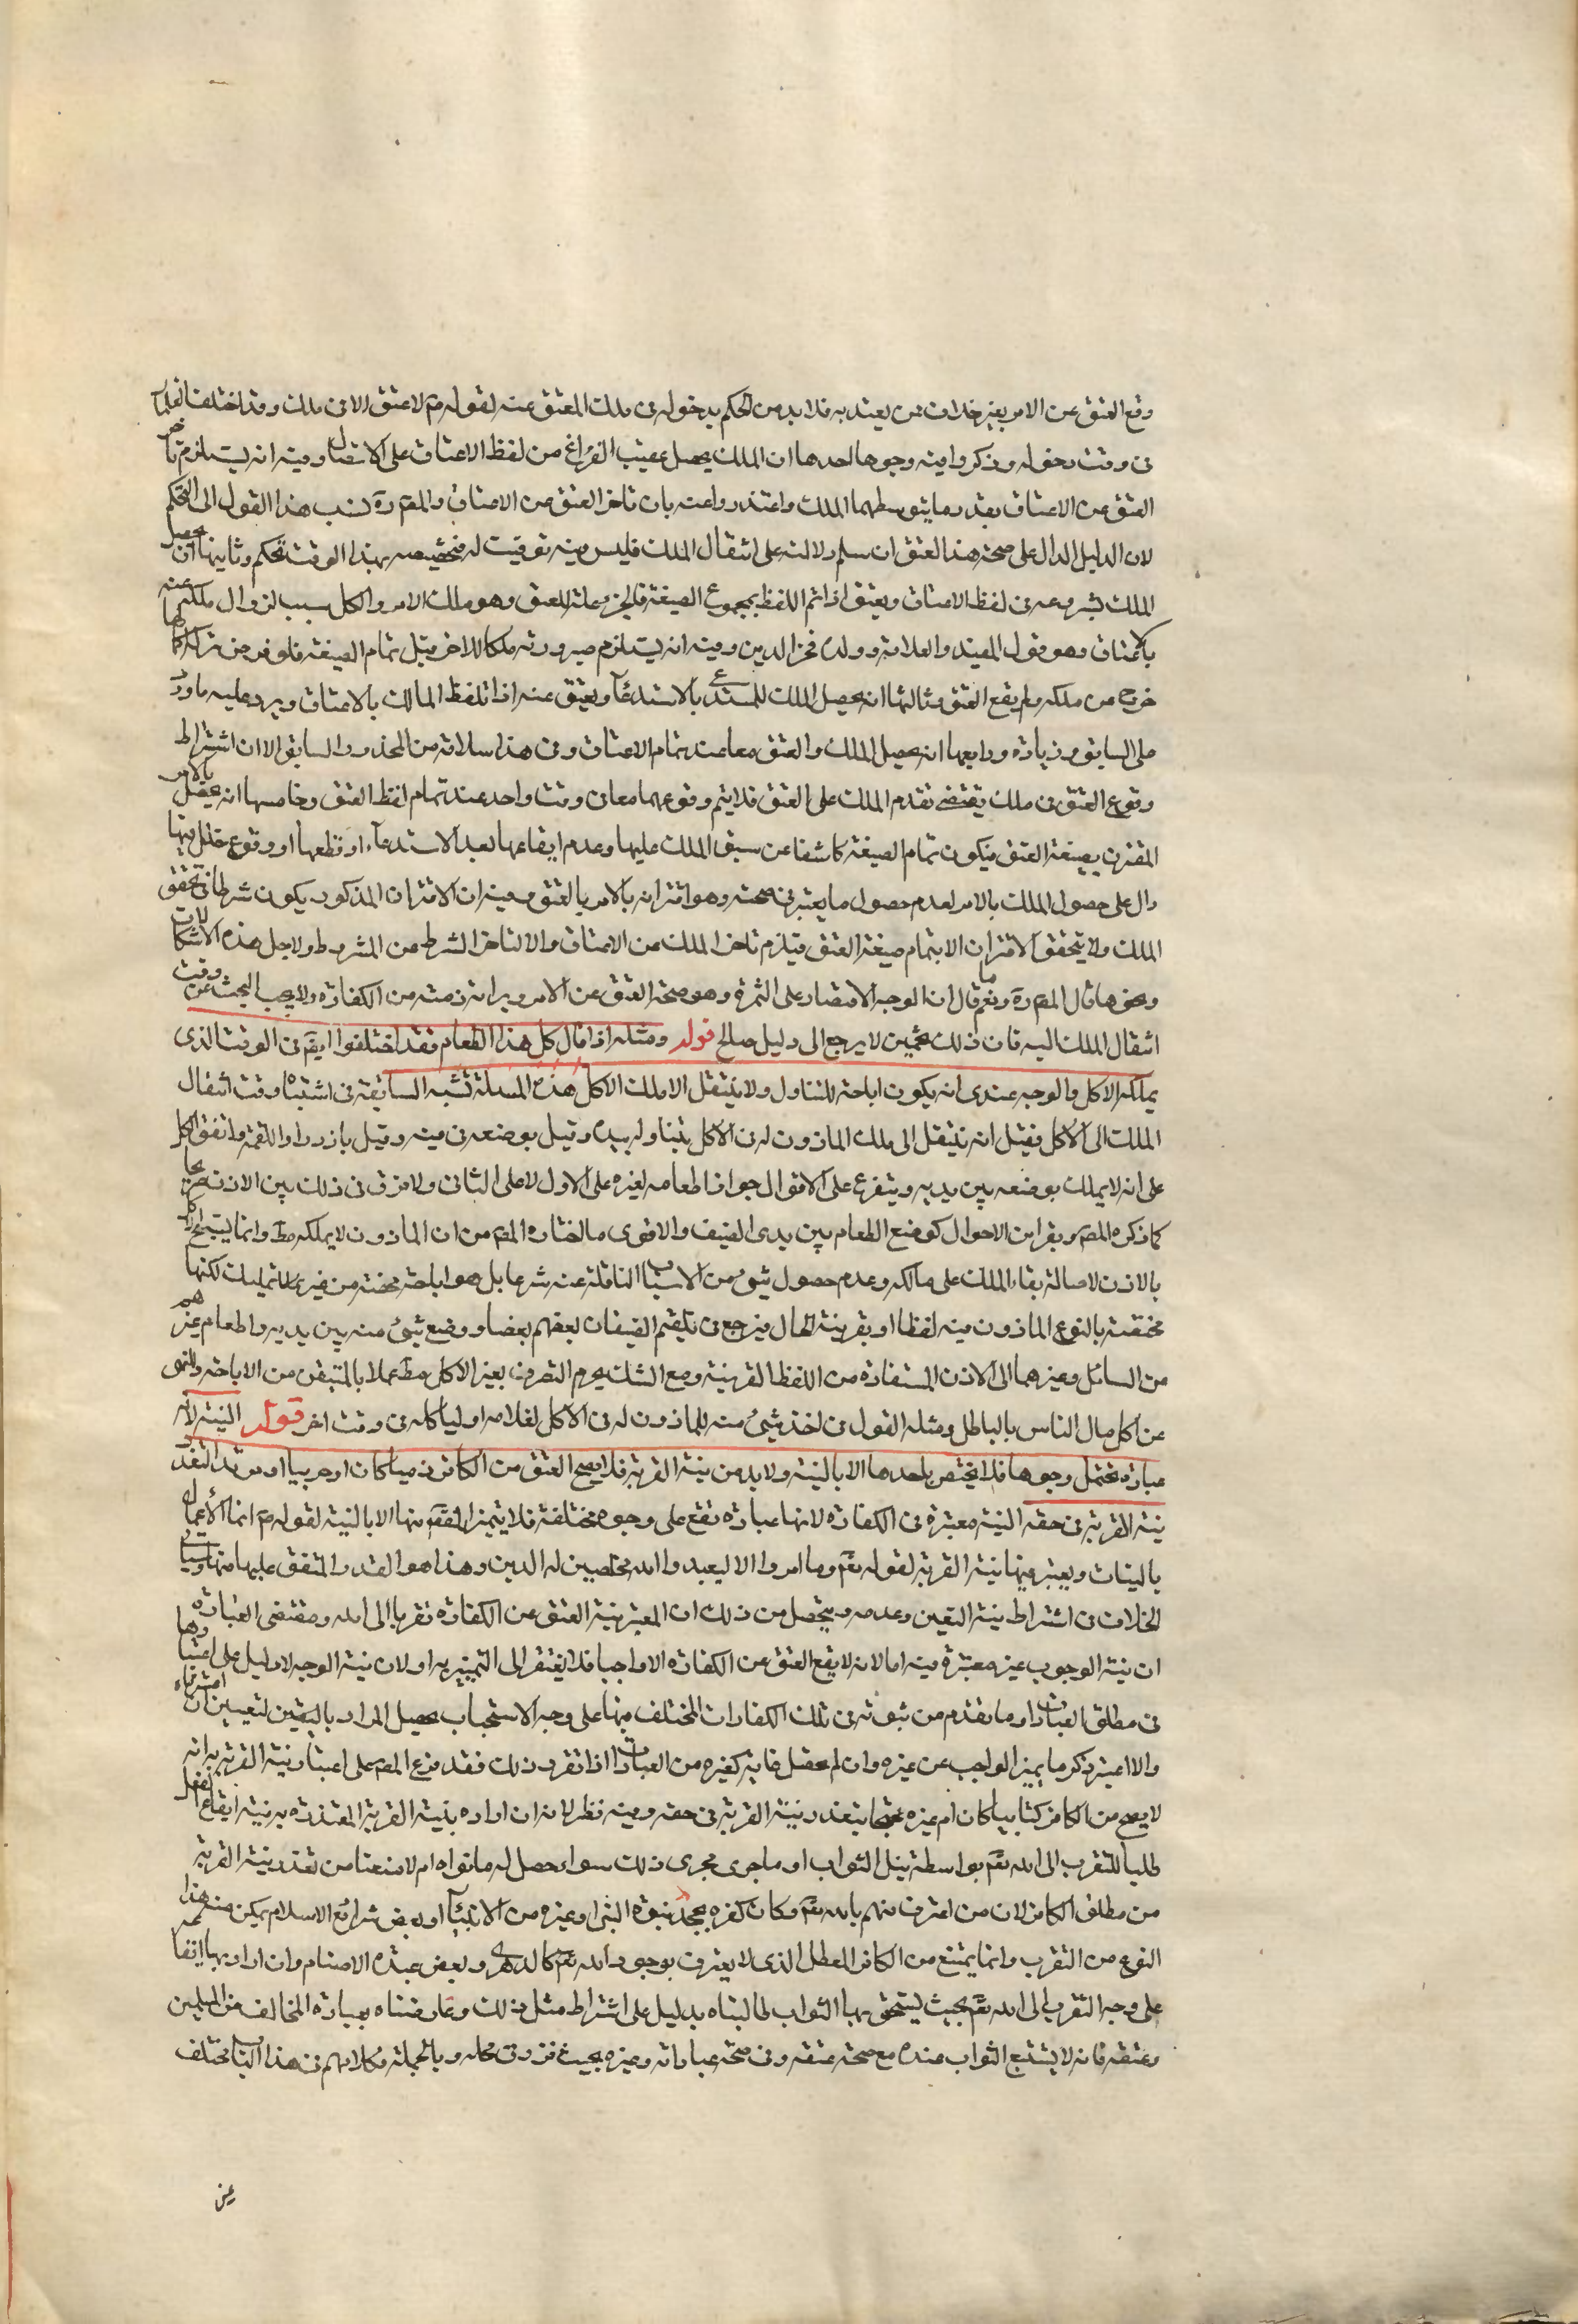 وقع العتق عن الامر بغير خلاف ممن يعتد به فلا بد من الحكم بدخوله فى ملك المعتق عنه لقوله ص لا عتق الا فى ملك وقد اختلف العلمآء
فى وقت دخوله وذكروا فيه وجوها احدها ان الملك يحصل عقيب الفراغ من لفظ الاعتاق على الاتصال وفيه انه يستلزم تاخر
العتق عن الاعتاق بقدر ما يتوسطهما الملك واعتذروا عنه بان تاخر العتق عن الاعتاق والمص ره نسب هذا القول الى التحكم
لان الدليل الدال على صحة هذا العتق ان سلم دلالته على انتقال الملك فليس فيه توقيت له فتخصيصه بهذا الوقت تحكم وثانيها ان يحصل
الملك بشروعه فى لفظ الاعتاق ويعتق اذا تم اللفظ بمجموع الصيغة فالجزء علة للعتق وهو ملك الامر والكل سبب لزوال ملكه عنه
بالاعتاق وهو قول المفيد والعلامة وولده فخر الدين وفيه انه يستلزم صيرورته ملكا للاخر قبل تمام الصيغة فلو فرض تركه اكمالها
خرج عن ملكه ولم يقع العتق وثالثها انه يحصل الملك للمستدعى بالاستدعآء ويعتق عنه اذا تلفظ المالك بالاعتاق ويرد عليه ما ورد
على السابق وزيادة ورابعها انه يحصل الملك والعتق معا عند تمام الاعتاق وفى هذا سلامة من المحذور السابق الا ان اشتراط
وقوع العتق فى ملك يقتضى تقدم الملك على العتق فلا يتم وقوعهما معا فى وقت واحد عند تمام لفظ العتق وخامسها انه يحصل بالامر
المقترن بصيغة العتق فيكون تمام الصيغة كاشفا عن سبق الملك عليها وعدم ايقاعها بعد الاستدعآء او قطعها او وقوع خلل فيها
دال على حصول الملك بالامر لعدم حصول ما يعتبر فى صحته وهو اقترانه بالامر بالعتق وفيه ان الاقتران المذكور يكون شرطا فى تحقق
الملك ولا يتحقق الاقتران الا بتمام صيغة العتق فيلزم تاخر الملك عن الاعتاق والا لتاخر الشرط عن المشروط ولاجل هذه الاشكالات
ونحوها قال المص ره ونعم ما قال ان الوجه الاقتصار على الثمرة وهو صحة العتق عن الامر وبراءة ذمته من الكفارة ولا يجب البحث عن وقت
انتقال الملك اليه فان ذلك تخمين لا يرجع الى دليل صالح قوله ومثله اذا قال كل هذا الطعام فقد اختلفوا ايضا فى الوقت الذى
يملكه الاكل والوجه عندى انه يكون اباحة للتناول ولا ينتقل الا ملك الاكل هذه المسئلة تشبه السابقة فى اشتباه وقت انتقال
الملك الى الاكل فقيل انه ينتقل الى ملك الماذون له فى الاكل بتناوله بيده وقيل بوضعه فى فيه وقيل بازدراد اللقمة واتفق الكل
على انه لا يملك بوضعه بين يديه ويتفرع على الاقوال جواز اطعامه لغيره على الاول لا على الثانى ولا فرق فى ذلك بين الاذن صريحا
كما ذكره المص وبقراين الاحوال كوضع الطعام بين يدى الضيف والاقوى ما اختاره المص من ان الماذون لا يملكه مط وانما يستبيح الاكل
بالاذن لاصالة بقاء الملك على مالكه وعدم حصول شىء من الاسباب الناقلة عنه شرعا بل هو اباحة محضة من غير تمليك لكنها
مختصة بالنوع الماذون فيه لفظا او بقرينة الحال فيرجع فى تلقيم الضيفان بعضهم بعضا ووضع شىء منه بين يديه واطعام غيرهم
من السائل وغيرهما الى الاذن المستفادة من اللفظ القرينة ومع الشك يحرم التصرف بغير الاكل مط عملا بالمتيقن من الاباحة والنهى
عن اكل مال الناس بالباطل ومثله القول فى اخذ شىء منه للماذون له فى الاكل لغلامه او لياكله فى وقت اخر قوله النية لانه
عبادة تحتمل وجوها فلا يختص باحدها الا بالنية ولا بد من نية القربة فلا يصح العتق من الكافر ذميا كان او حربيا او مرتدا لتعذر
نية القربة فى حقه النية معتبرة فى الكفارة لانها عبادة تقع على وجوه مختلفة فلا يتميز المقصود منها الا بالنية لقوله ص انما الاعمال
بالنيات ويعتبر فيها نية القربة لقوله تعم وما امروا الا ليعبدوا الله مخلصين له الدين وهذا هو القدر المتفق عليها منها وسياتى
الخلاف فى اشتراط نية التعين وعدمه ويتحصل من ذلك ان المعتبر نية العتق عن الكفارة تقربا الى الله ومقتضى العبارة
ان نية الوجوب غير معتبرة فيه اما لانه لا يقع العتق عن الكفارة الا واجبا فلا يفتقر الى التمييز به او لان نية الوجه لا دليل على اعتبارها
فى مطلق العبادات او ما تقدم من ثبوته فى تلك الكفارات المختلف فيها على وجه الاستحباب يحصل المراد باليقين لتعيين ان اشترطناه
والا اعتبر ذكر ما يميز الواجب عن غيره وان لم يحصل غاية كغيره من العبادات اذا تقرر ذلك فقد فرع المص على اعتبار نية القربة به انه
لا يصح من الكافر كتابيا كان ام غيره محتجا بتعذر نية القربة فى حقه وفيه نظر لانه ان اراد بنية القربة المتعذرة به نية ايقاع الفعل
طلبا للتقرب الى الله تعم بواسطة نيل الثواب او ما جرى مجرى ذلك سواء حصل له ما نواه ام لا منعنا من تعذر نية القربة
من مطلق الكافر لان من اعترف منهم بالله تعم وكان كفره بجحد نبوة النبى او غيره من الانبيآء او بعض شرائع الاسلام يمكن منه هذا
النوع من التقرب وانما يمتنع من الكافر المعطل الذى لا يعترف بوجود الله تعم كالدهرى وبعض عبدة الاصنام وان اراد بها ايقاعه
على وجه التقرب الى الله تعم بحيث يستحق بها الثواب طالبناه بدليل على اشتراط مثل ذلك وعارضناه بعبادة المخالف من المسلمين
وعتقه فانه لا يستتبع الثواب عنده مع صحة عتقه وفى صحة عباداته وغيره بحيث قرر فى محله وبالجملة فكلامهم فى هذا الباب مختلف